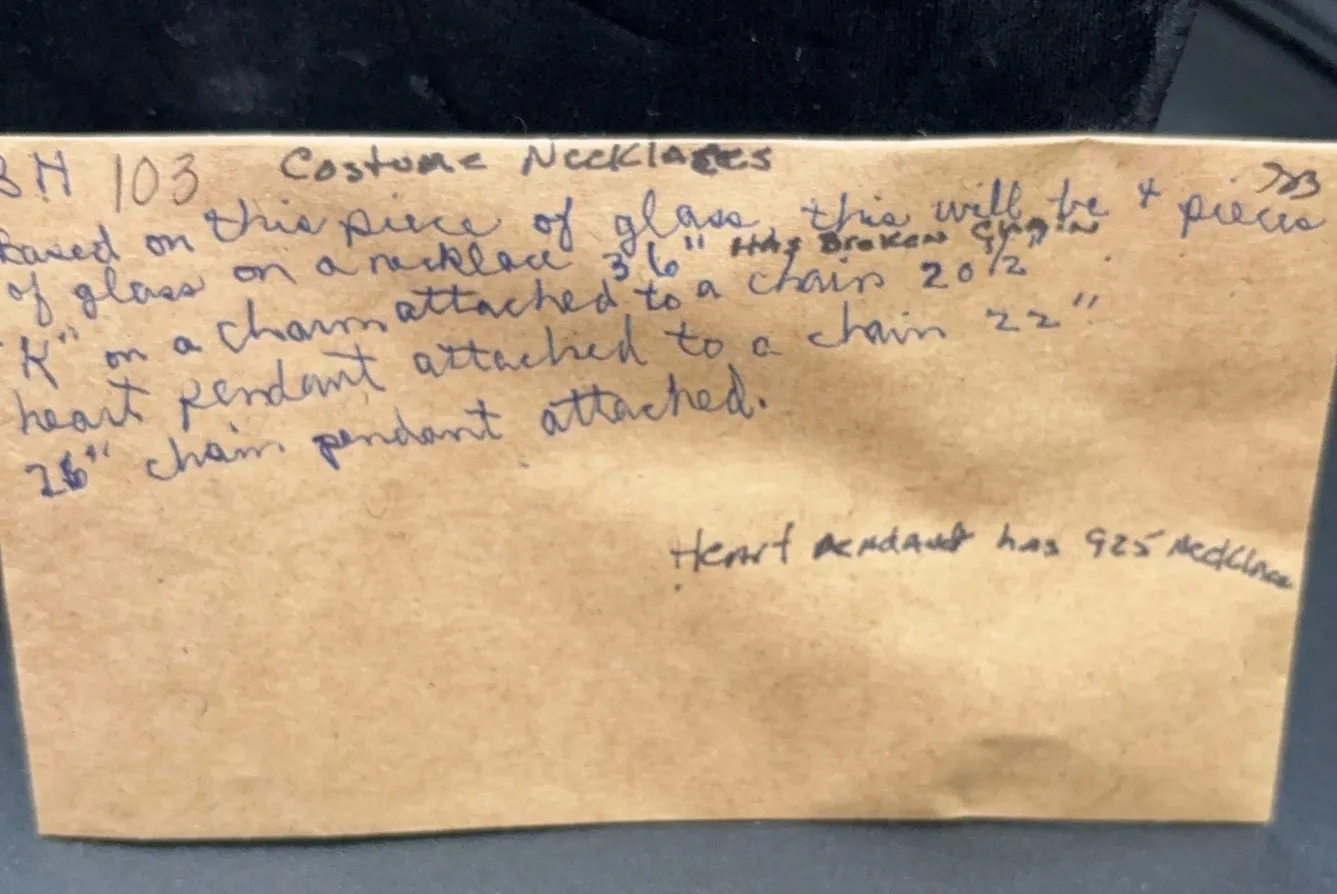 BH 103 Costume Necklaces
based on this piece of glass, this will be 4 pieces
of glass on a necklace 36" Has Broken Chain
"K" on a charm attached to a chain 20 1/2"
heart pendant attached to a chain 22"
26" chain pendant attached.
Heart Pendant has 925 Necklace